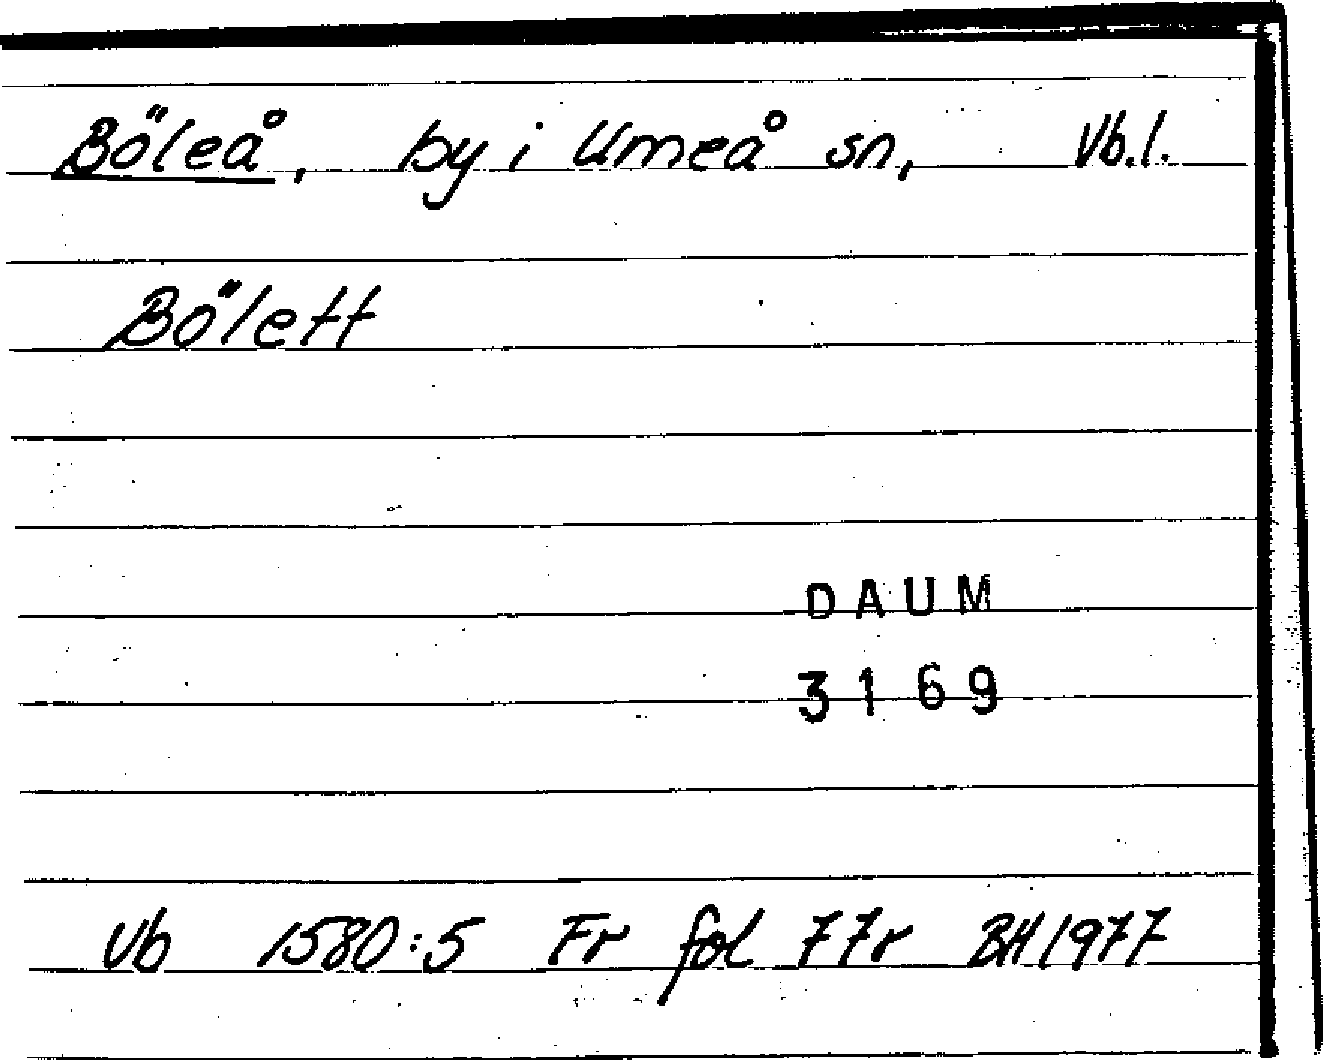 Böleå, by i Umeå sn, Vb.l.
Bölett
DAUM
3169
Vb 1580:5 Fr fol 77r BH 1977